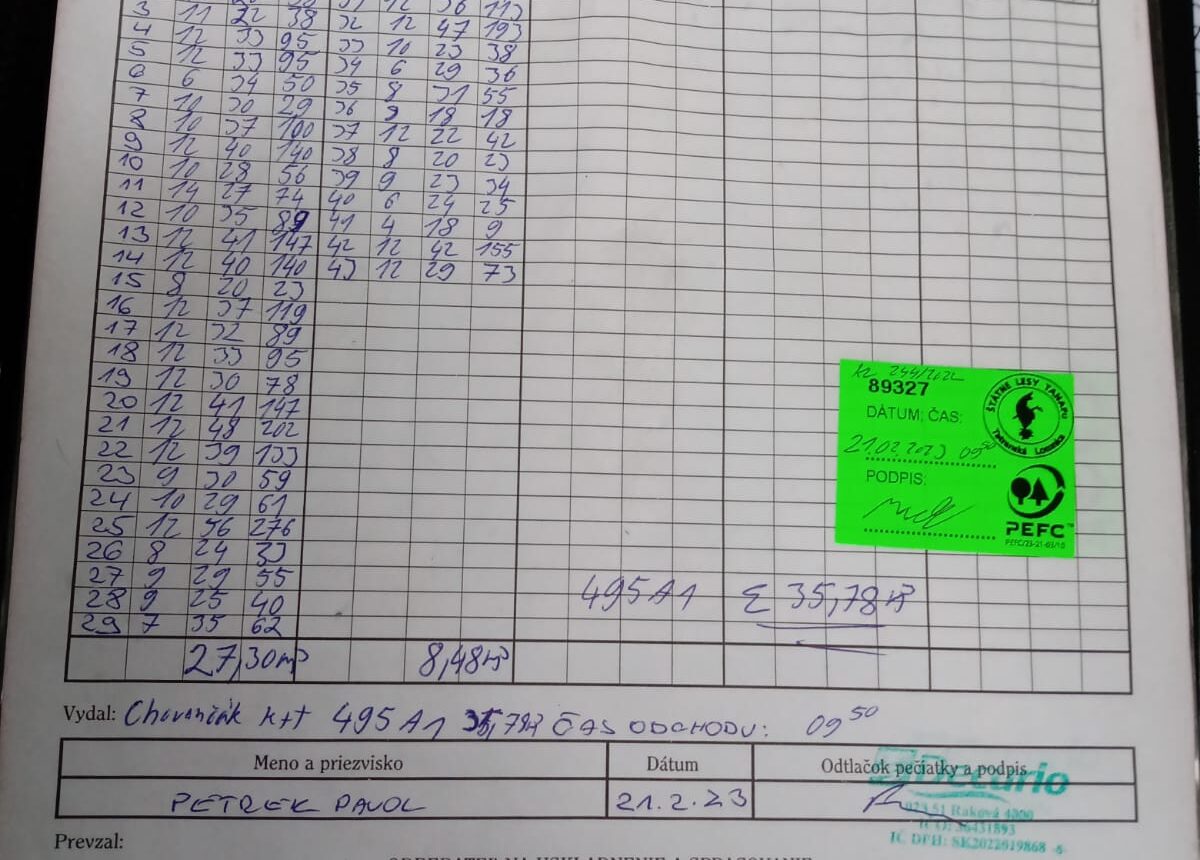 3 11 22 38 31 12 36 113
4 12 33 95 32 12 47 193
5 12 33 95 33 10 23 38
6 6 34 50 34 6 29 36
7 10 30 29 35 8 31 55
8 10 37 100 36 9 18 18
9 12 40 140 37 12 22 42
10 10 28 56 38 8 20 23
11 14 27 74 39 9 23 34
12 10 35 89 40 6 24 25
13 12 41 147 41 4 18 9
14 12 40 140 42 12 42 155
15 8 20 23 43 12 29 73
16 12 37 119
17 12 32 89
18 12 33 95
19 12 30 78
20 12 41 147
21 12 48 202
22 12 39 133
23 9 30 59
24 10 29 61
25 12 56 276
26 8 24 33
27 9 29 55
28 9 25 40
29 7 35 62
27,30m³ 8,48m³
495 A1 Σ 35,78m³
89327
DÁTUM, ČAS:
21.02.2023 09⁵⁰
PODPIS:
ŠTÁTNE LESY TANAPU
Tatranská Lomnica
PEFC™
PEFC/23-21-03/10
Vydal: 495 A1 35,78m³ ČAS ODCHODU: 09⁵⁰
Meno a priezvisko Dátum Odtlačok pečiatky a podpis
PETREK PAVOL 21.2.23
023 51 Raková 4000
IČO: 36431893
IČ DPH: SK2022019868
Prevzal: